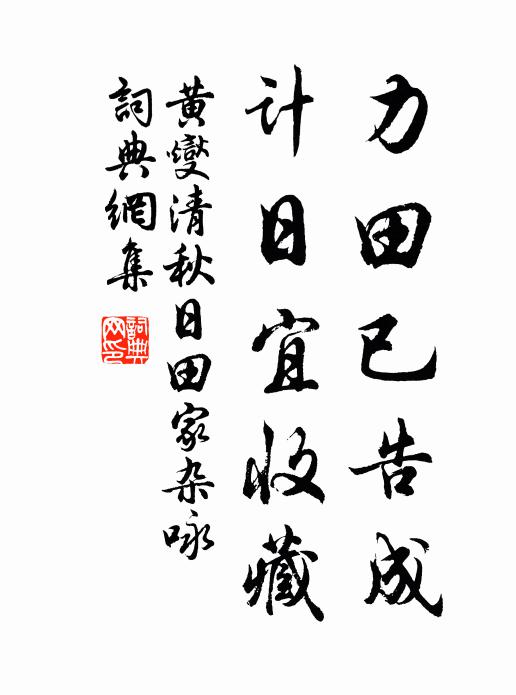 力田已告成
计日宜收藏
黄燮清秋日田家杂咏
詞典網集
詞典网印